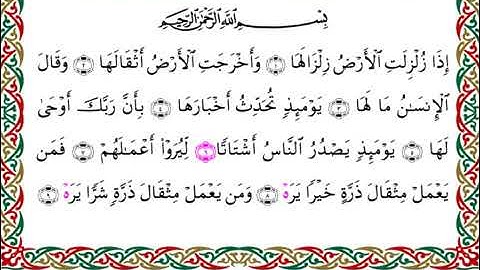 بِسْمِ اللَّهِ الرَّحْمَٰنِ الرَّحِيمِ
إِذَا زُلْزِلَتِ ٱلْأَرْضُ زِلْزَالَهَا ۝١ وَأَخْرَجَتِ ٱلْأَرْضُ أَثْقَالَهَا ۝٢ وَقَالَ
ٱلْإِنسَٰنُ مَا لَهَا ۝٣ يَوْمَئِذٍ تُحَدِّثُ أَخْبَارَهَا ۝٤ بِأَنَّ رَبَّكَ أَوْحَىٰ
لَهَا ۝٥ يَوْمَئِذٍ يَصْدُرُ ٱلنَّاسُ أَشْتَاتًا ۝٦ لِّيُرَوْا۟ أَعْمَٰلَهُمْ ۝٧ فَمَن
يَعْمَلْ مِثْقَالَ ذَرَّةٍ خَيْرًا يَرَهُۥ ۝٨ وَمَن يَعْمَلْ مِثْقَالَ ذَرَّةٍ شَرًّا يَرَهُۥ ۝٩